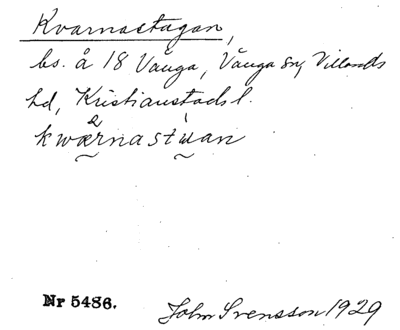 Kvarnastugan,
bs. å 18 Vånga, Vånga sn, Villands
hd, Kristianstads l.
kwærnastuan
Nr 5486.
John Svensson 1929